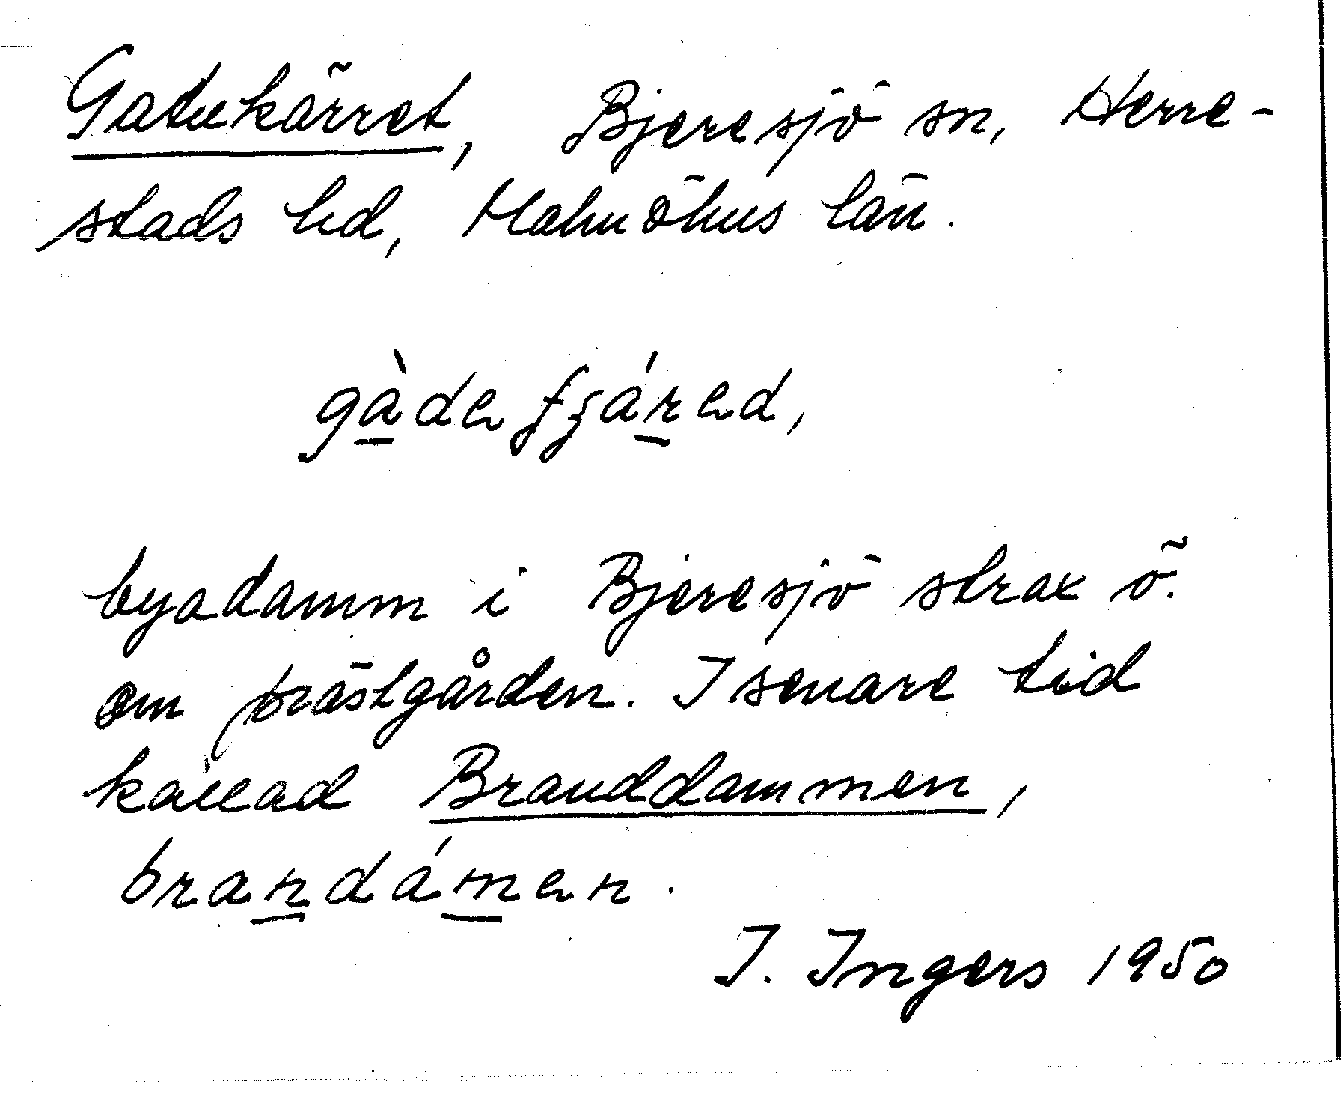 Gatukärret, Bjeresjö sn, Herre-
stads hd, Malmöhus län.
gà̱defjáṟed,
byadamm i Bjeresjö strax ö.
om prästgården. I senare tid
kallad Branddammen,
braṉdám̱en.
I. Ingers 1950